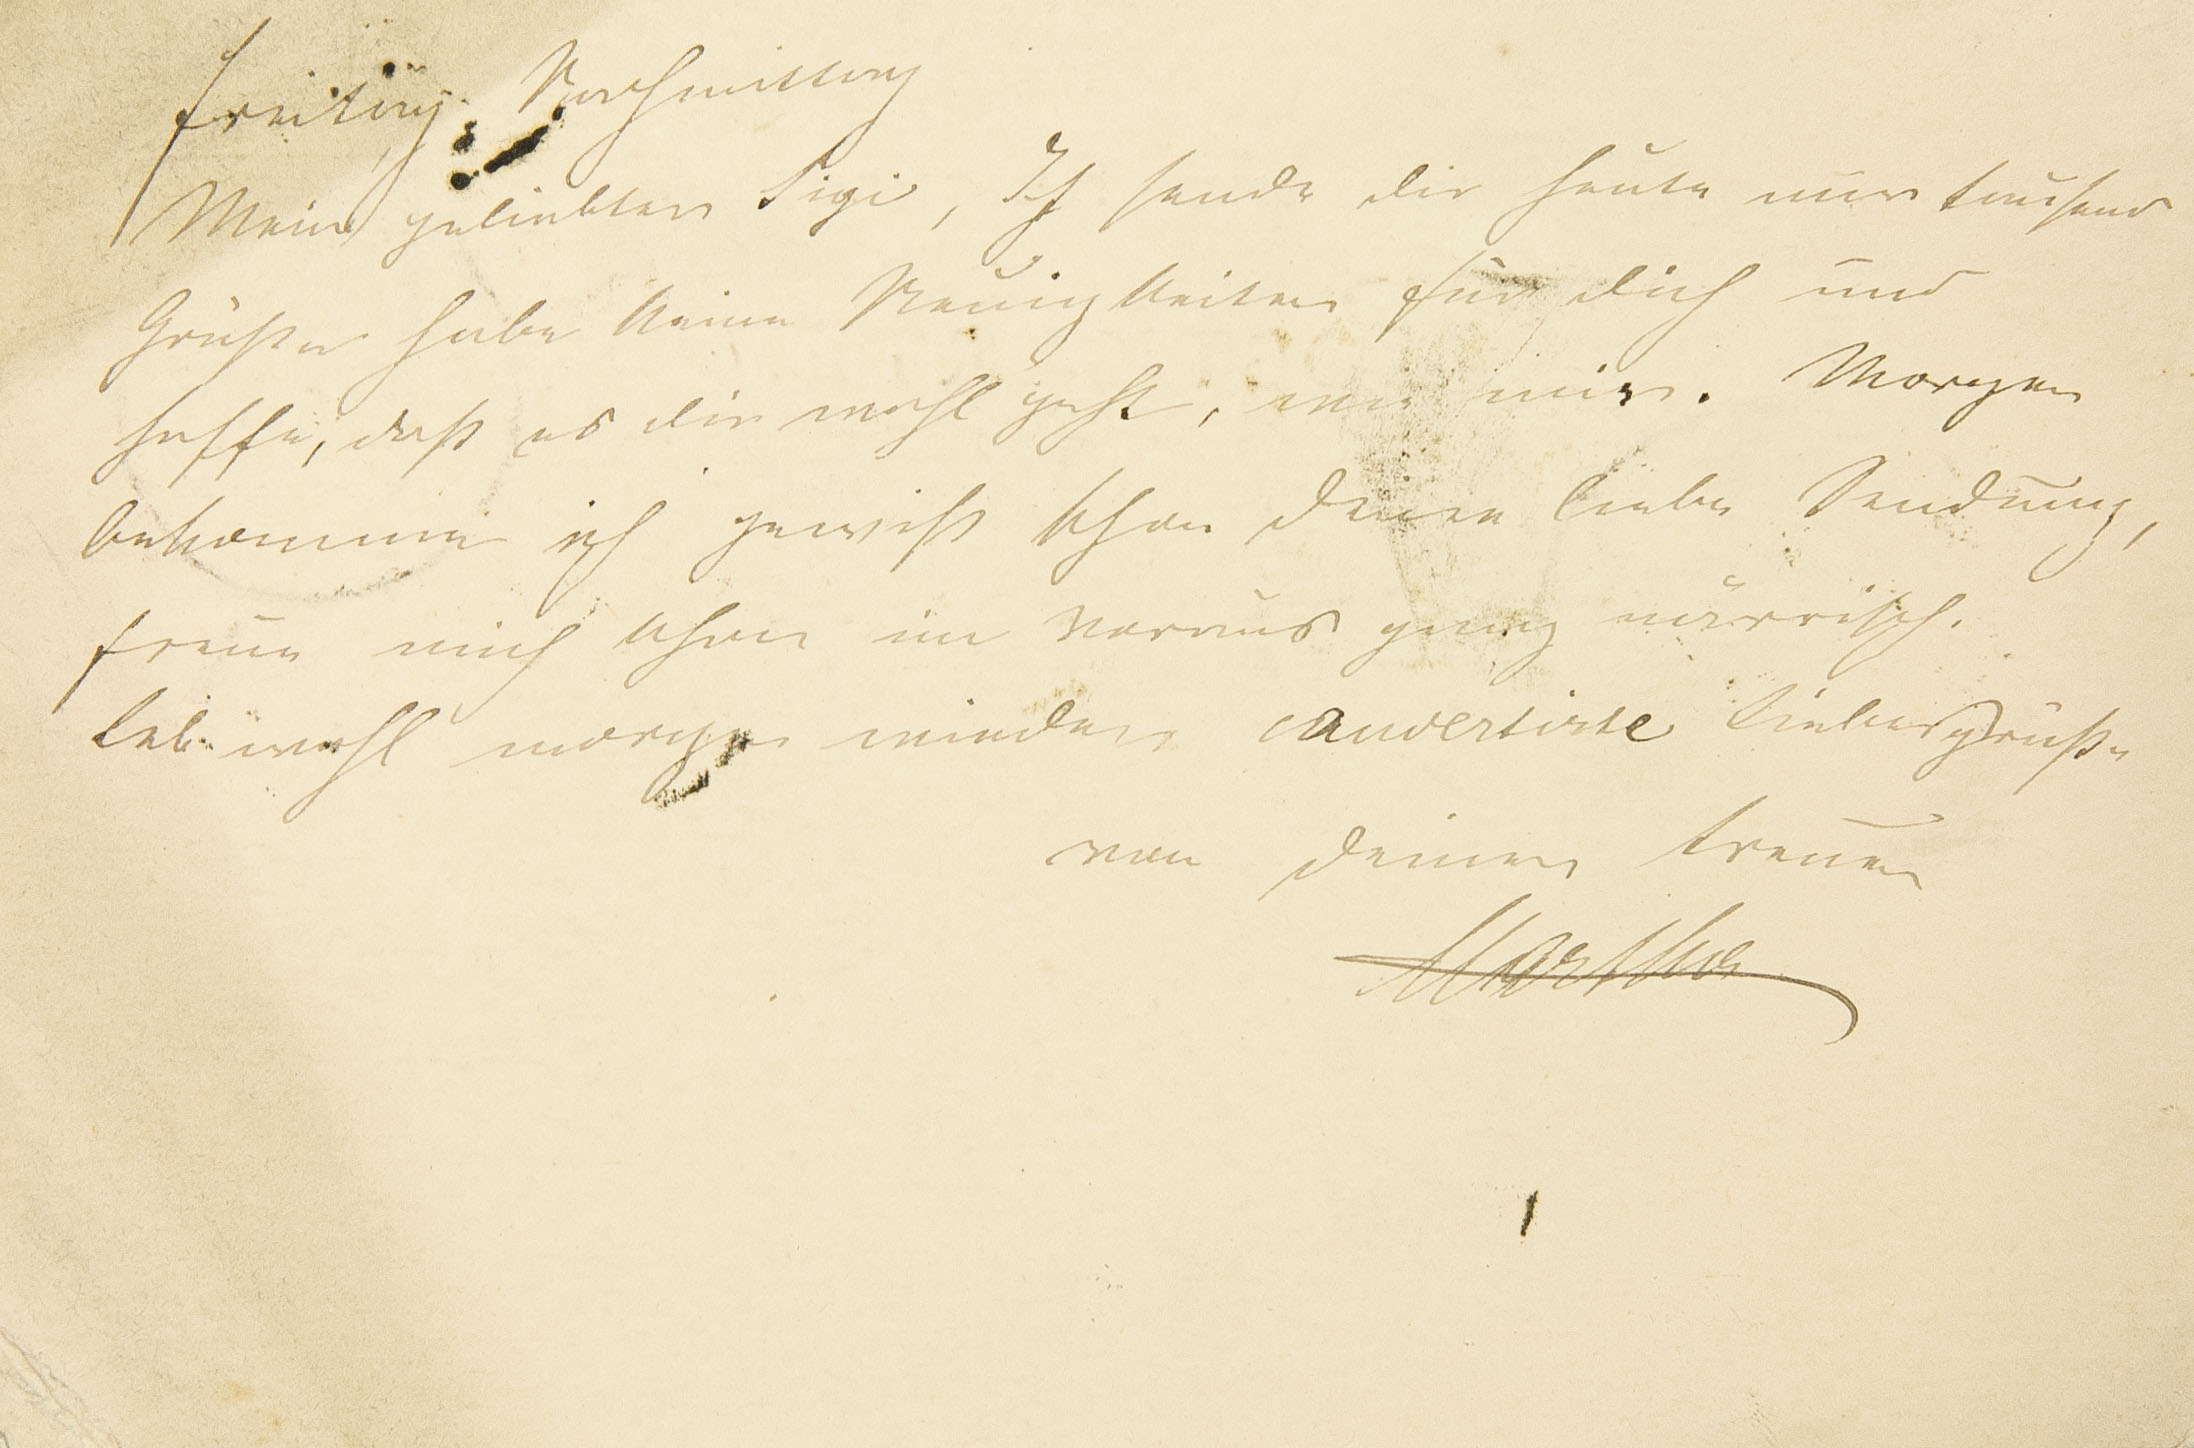 Freitag, Nachmittag
Mein geliebter Sigi, Ich sende dir heute nur tausend
Grüße habe keine Neuigkeiten für dich und
hoffe, daß es dir wohl geht, wie mir. Morgen
bekomme ich gewiß schon deine liebe Sendung,
freue mich schon im voraus ganz närrisch.
Leb wohl morgen wieder couvertirte Liebesgrüße
von deiner treuen
Martha